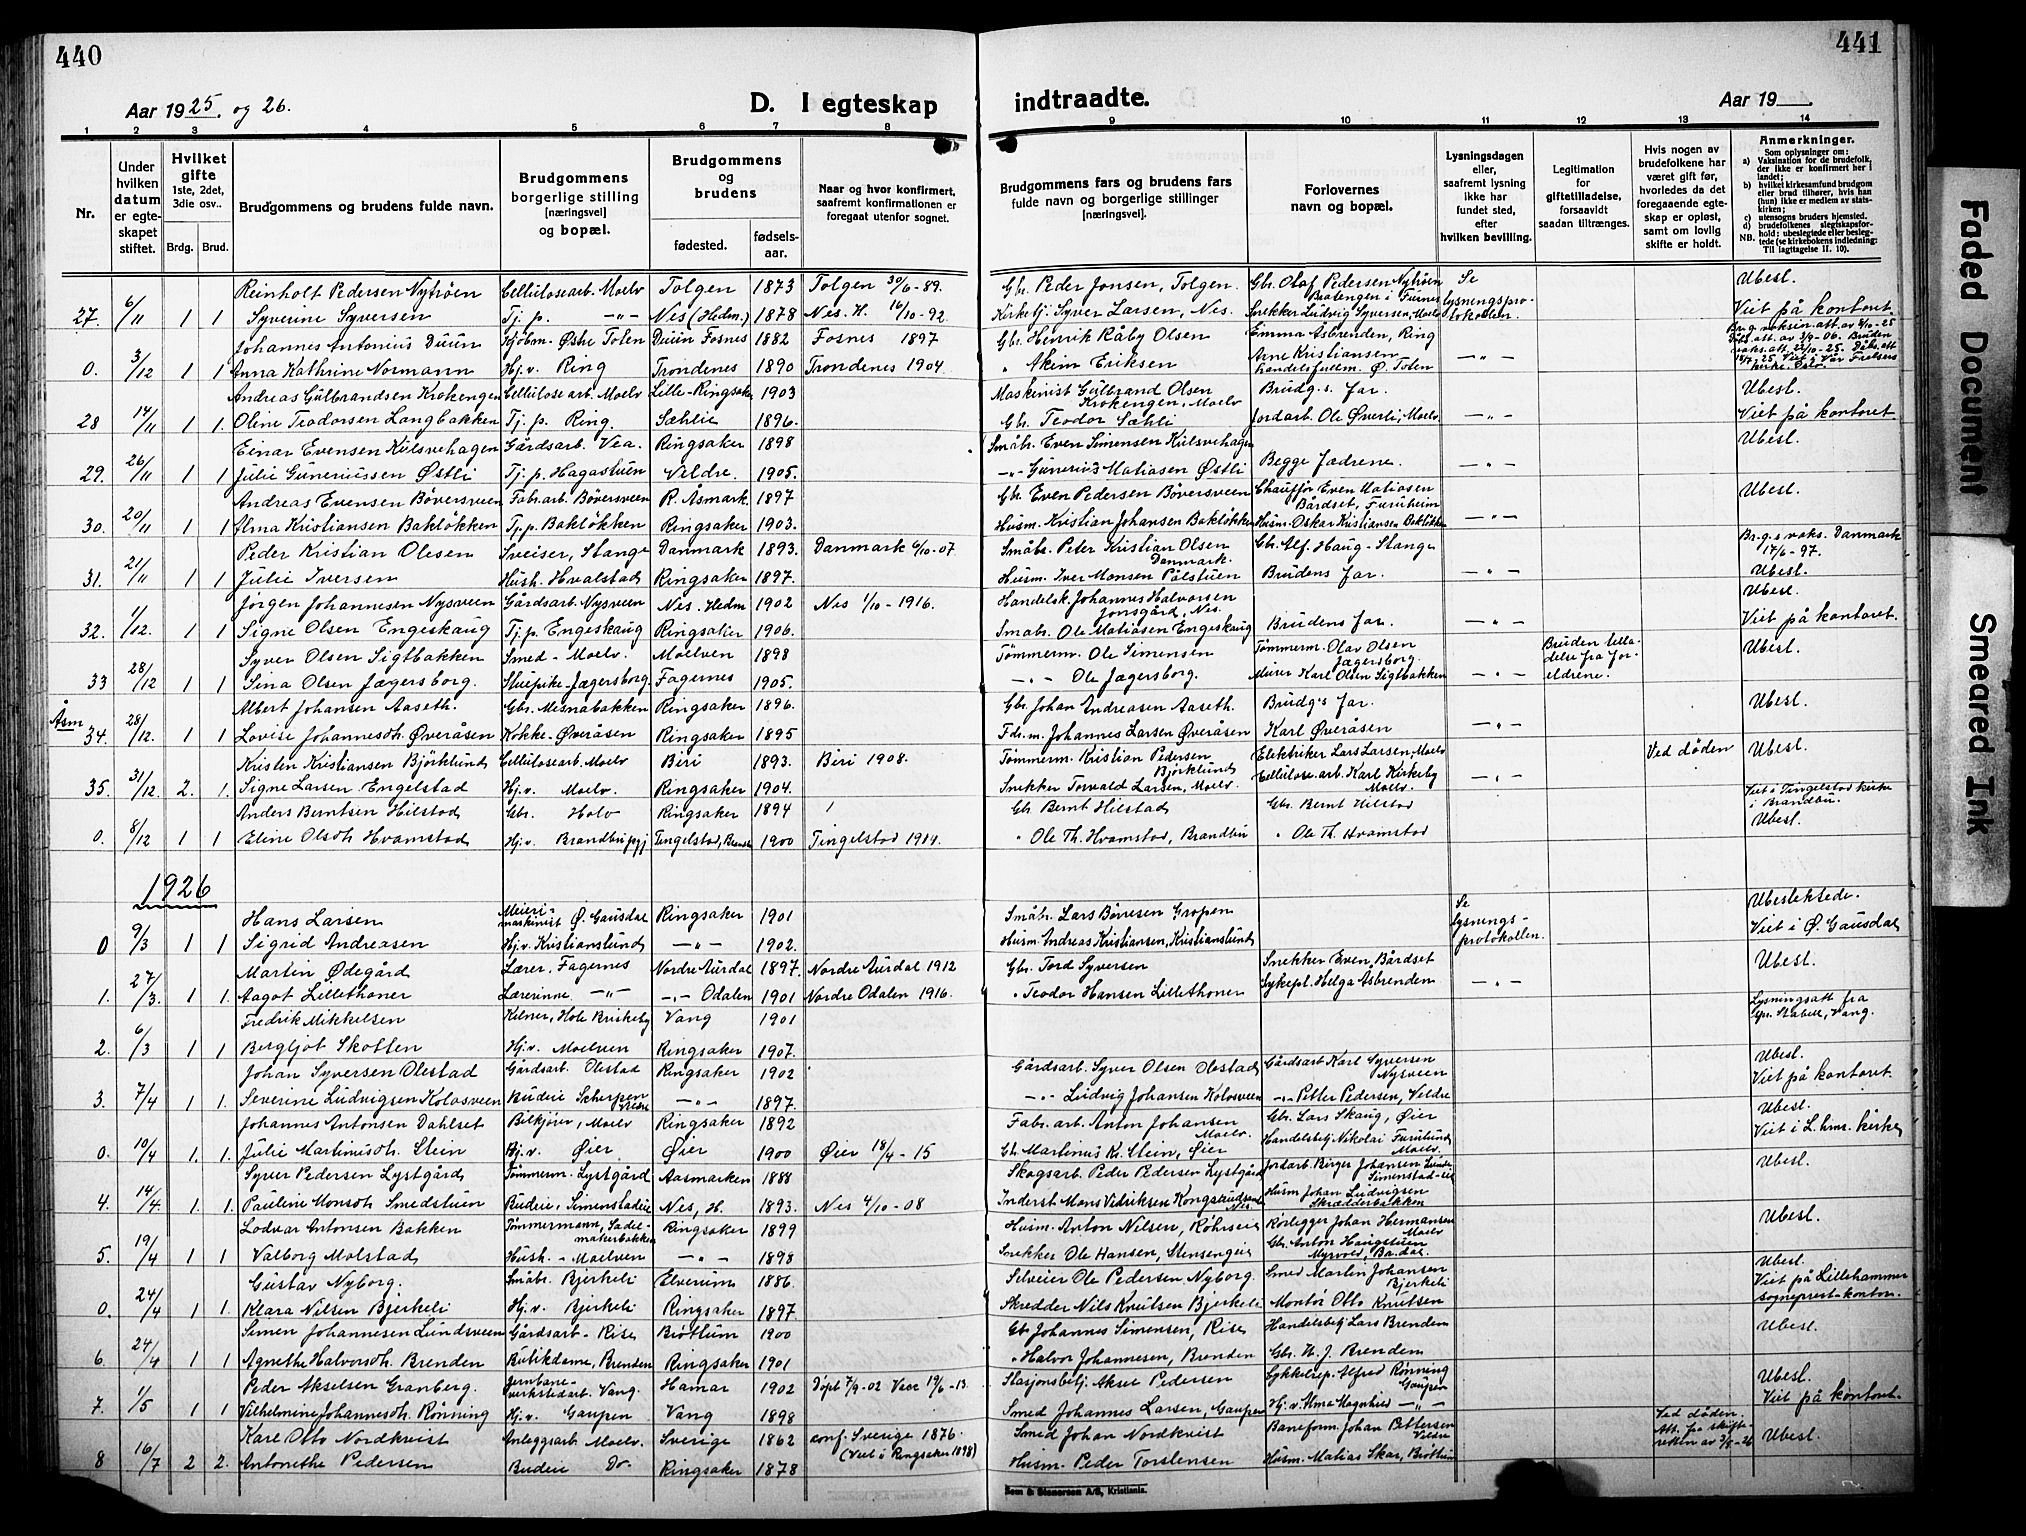 440
Aar 1925. og 26.
D. I egteskap
1 2 3 4 5 6 7 8
Nr.
Under hvilken datum er egteskapet stiftet.
Hvilket gifte 1ste, 2det, 3die osv..
Brdg. Brud.
Brudgommens og brudens fulde navn.
Brudgommens borgerlige stilling [næringsvei] og bopæl.
Brudgommens og brudens
fødested. fødselsaar.
Naar og hvor konfirmert, saafremt konfirmationen er foregaat utenfor sognet.
Reinholt Pedersen Nytrøen Cellulosearb. Moelv Tolgen 1873 Tolgen 30/6-89.
27. 6/11 1 1 Syverine Syversen Tj. p. -"- Nes (Hedm.) 1878 Nes. H. 16/10-92.
Johannes Antonius Duun Kjøbm. Østre Toten Duun Fosnes 1882 Fosnes 1897
0. 3/12 1 1 Anna Kathrine Normann Hj. v. Ring Trondenes 1890 Trondenes 1904.
Andreas Gulbrandsen Krokengen Cellulosearb. Moelv Lille-Ringsaker 1903
28 14/11 1 1. Oline Teodorsen Langbakken Tj. p. Ring. Sæhlie 1896.
Einar Evensen Kulsvehagen Gårdsarb. Vea. Ringsaker 1898
29. 26/11 1 1 Julie Guneriussen Østli Tj. p. Hagastuen Veldre. 1905.
Andreas Evensen Bøversveen Fabr.arb. Bøversveen R. Åsmark. 1897
30. 20/11 1 1 Alma Kristiansen Bakløkken Tj. p. Bakløkken Ringsaker 1903.
Peder Kristian Olesen Sveiser, Stange Danmark 1893. Danmark 6/10-07.
31. 21/11 1 1 Julie Iversen Hush. Hvalstad Ringsaker 1897.
Jørgen Johannesen Nysveen Gårdsarb. Nysveen Nes. Hedm 1902 Nes 1/10-1916.
32. 1/12. 1 1 Signe Olsen Engeskaug Tj. p. Engeskaug Ringsaker 1906.
Syver Olsen Sigtbakken Smed - Moelv. Moelven 1898
33 28/12 1 1 Sina Olsen Jægersborg. Stuepike-Jægersborg. Fagernes 1905.
Albert Johansen Aaseth. Gbr. Mesnabakken Ringsaker 1896.
Åsm 34. 28/12. 1 1 Lovise Johannesdh. Øveråsen Kokke-Øveråsen Ringsaker 1895
Kristen Kristiansen Bjørklund Cellulosearb. Moelv Biri 1893. Biri 1908.
35. 31/12. 2. 1. Signe Larsen Engelstad Hj. v. Moelv. Ringsaker 1904.
Anders Berntsen Hilstad Gbr. Holo Ringsaker 1894
0. 8/12 1 1 Eline Olsdh Hvamstad Hj. v. Brandbu Tingelstad, 1900 Tingelstad 1914.
1926
Hans Larsen Meierimaskinist Ø. Gausdal Ringsaker 1901
0 9/3 1 1 Sigrid Andreasen Hj. v. Kristianslund -"- 1902.
Martin Ødegård Lærer. Fagernes Nordre Aurdal 1897. Nordre Aurdal 1912
1. 27/3. 1 1. Aagot Lillethoner Lærerinne -"- -"- Odalen 1901 Nordre Odalen 1916.
Fredrik Mikkelsen Kelner, Vang 1901
2. 6/3 1 1 Bergljot Skotten Hj. v. Moelven Ringsaker 1907.
Johan Syversen Olestad Gårdsarb. Olestad Ringsaker 1902
3. 7/4 1 1. Severine Ludvigsen Kolosveen Budeie Scherpen Veldre -"- 1897.
Johannes Antonsen Dahlset Bilkjører, Moelv Ringsaker 1892
0. 10/4 1. 1. Julie Martinusdh. Stein Hj. v. Øier Øier 1900 Øier 18/4-15
Syver Pedersen Lystgård Tømmerm. Lystgård Aasmarken 1888
4. 14/4. 1. 1. Pauline Monsdh Smedstuen Budeie, Simenstadeie Nes, H. 1893. Nes 4/10-08
Lodvar Antonsen Bakken Tømmermann, Sadelmakerbakken Ringsaker 1899
5. 19/4 1 1 Valborg Molstad Hush.-Moelven -"- 1898
Gustav Nyborg. Småbr. Bjerkeli Elverum 1886.
0. 24/4 1 1. Klara Nilsen Bjerkeli Hj. v. Bjerkeli Ringsaker 1897
Simen Johannesen Lundsveen Gårdsarb-Rise Brøttum 1900
6. 24/4 1 1 Agnethe Halvorsdh. Brenden Butikdame, Brenden Ringsaker 1901
Peder Akselsen Granberg. Jernbaneverkstedarb. Vang. Hamar 1902 Døpt 7/9-02 Vang 19/6-13.
7. 1/5 1 1 Vilhelmine Johannesdh. Rønning Hj. v. Gaupen Vang 1898
Karl Otto Nordkvist Anleggsarb. Moelv. Sverige 1862 conf. Sverige 1876.
8 16/7 2 2. Antonethe Pedersen Budeie Do. Ringsaker 1878 (Viet i Ringsaker 1898)
441
indtraadte.
Aar 19___.
9 10 11 12 13 14
Brudgommens fars og brudens fars fulde navn og borgerlige stillinger [næringsvei].
Forlovernes navn og bopæl.
Lysningsdagen eller, saafremt lysning ikke har fundet sted, efter hvilken bevilling.
Legitimation for giftetilladelse, forsaavidt saadan tiltrænges.
Hvis nogen av brudefolkene har været gift før, hvorledes da det foregaaende egteskap er opløst, samt om lovlig skifte er holdt.
Anmerkninger.
Som oplysninger om:
a) Vaksination for de brudefolk, der ikke er konfirmert her i landet;
b) hvilket kirkesamfund brudgom eller brud tilhører, hvis han (hun) ikke er medlem av statskirken;
c) utensogns bruders hjemsted.
d) brudefolkenes slegtskapsforhold; ubeslegtede eller beslegtede (se kirkebokens indledning:
NB. Til iagttagelse II. 10).
Gbr. Peder Jonsen, Tolgen. Gbr. Olaf Pedersen Nytrøen Bratengen i Furnes Se Ubesl.
Kirkebtj. Syver Larsen, Nes. Snekker Ludvig Syversen, Moelv lysningsprotokollen. Viet på kontoret.
Gbr. Henrik Råby Olsen Emma Asbrenden, Ring
" Akim Eriksen Arne Kristiansen handelsfullm. Ø. Toten -"- Viet i Vår Frelsers kirke, Oslo.
Maskinist Gulbrand Olsen Krokengen, Moelv Brudg.s far. Ubesl.
Gbr. Teodor Sæhli Jordarb. Ole Øverli, Moelv -"- Viet på kontoret
Småbr. Even Simensen Kulsvehagen Ubesl.
-"- Gunerius Matiasen Østli Begge fædrene. -"-
Gbr. Even Pedersen Bøversveen Chauffør Even Matiasen Bårdset, Furuheim Ubesl.
Husm. Kristian Johansen Bakløkken Husm. Oskar Kristiansen Bakløkken -"-
Småbr. Peter Kristian Olsen Danmark. Gbr. Alf. Haug-Stange Br.g.s vaks. Danmark 17/6-97.
Husm. Iver Monsen Pålstuen Brudens far. -"- Ubesl.
Handelsk. Johannes Halvorsen Jonsgård, Nes. Ubesl.
Småbr. Ole Matiasen Engeskaug Brudens far. -"- Viet på kontoret.
Tømmerm. Ole Simensen Tømmerm. Olav Olsen Jægersborg. Bruden tilladelse fra foreldrene. Ubesl.
-"- Ole Jægersborg. Murer Karl Olsen Sigtbakken -"-
Gbr. Johan Andreasen Aaseth. Brudg's far. Ubesl.
Fdr. m. Johannes Larsen Øveråsen Karl Øveråsen -"-
Tømmerm. Kristian Pedersen Bjørklund Elektriker Lars Larsen, Moelv Ved døden Ubesl.
Snekker Torvald Larsen, Moelv. Cellulose.arb. Karl Kirkeby Moelv. -"-
Gbr. Bernt Hilstad Gbr. Bernt Hilstad Viet i Tingelstad kirke i Brandbu.
" Ole Th. Hvamstad, Brandbu " Ole Th. Hvamstad Ubesl.
Småbr. Lars Børresen Gropen Se lysningsprotokollen. Ubeslektede.
Husm. Andreas Kristiansen, Kristianslund Viet i Ø. Gausdal
Gbr. Tord Syversen Snekker Even Bårdset Ubesl.
" Teodor Hansen Lillethoner Sykepl. Helga Asbrenden -"-
Lysningsatt fra Spr. Stabell, Vang.
Ubesl.
Gårdsarb. Syver Olsen Olestad Gårdsarb Karl Syversen Nysveen Viet på kontoret
-"- Ludvig Johansen Kolosveen -"- Petter Pedersen, Veldre
Fabr. arb. Anton Johansen Moelv. Gbr. Lars Skaug, Øier Ubesl.
Gbr. Martinus K. Stein, Øier Handelsbetj. Nikolai Furulund Moelv. Viet i L.hmr. kirke
Skogsarb. Peder Pedersen Lystgård Jordarb. Birger Johansen Ubesl.
Inderst Mons Vidriksen Nes. Husm Johan Ludvigsen Skrædderbakken
Husm. Anton Nilsen, Røhrseie Rørlegger Johan Hermansen Moelv Ubesl.
Snekker Ole Hansen, Stensengeie Gbr. Anton Haugstuen Myrvold,
Selveier Ole Pedersen Nyborg. Smed Martin Johansen Bjerkeli Ubesl.
Skredder Nils Knutsen Bjerkeli Montør Otto Knutsen Viet på Lillehammer sogneprest-kontor.
Gbr Johannes Simensen, Rise Handelsbetj Lars Brenden Ubesl.
" Halvor Johannesen, Brenden Gbr. H. J. Brenden
Stasjonsbetj. Aksel Pedersen Sykkelrep. Alfred Rønning Gaupen Ubesl.
Smed Johannes Larsen, Gaupen Hj. v. Alma Magnhild -"- Viet på kontoret
Smed Johan Nordkvist Baneform. Johan Pettersen Veldre Ved døden. Att. fra skifteretten av 3/5-26 Ubesl.
Husm. Peder Torstensen Husm. Matias Skar, Brøttum
Sem & Stenersen A/S, Kristiania.
Faded Document
Smeared Ink